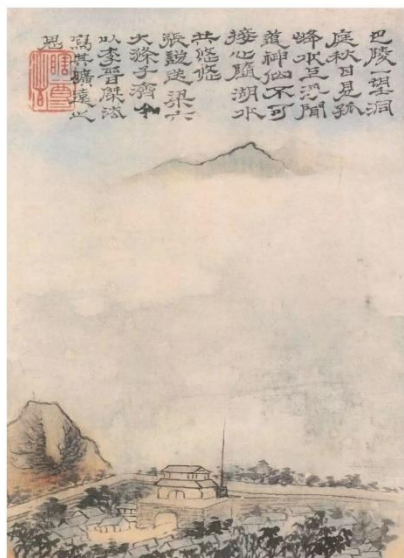 巴陵一望洞
庭秋日見孤
峰水上浮聞
道神仙不可
接心隨湖水
共悠悠
張說送梁六
大滌子濟
以李晉傑法
寫其曠遠之
思